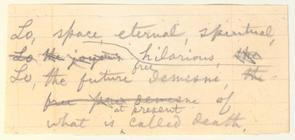 Lo, space eternal, spiritual,
Lo the joyous hilarious, the
free
Lo, the future Demesne the
free your demesne of
at present
what is called death.